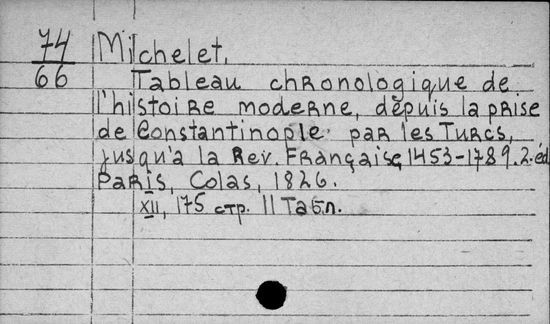 74
66
Michelet.
Tableau chronologique de
l'histoire moderne, depuis la prise
de Constantinople par les Turcs,
jusqu'a la Rev. Française 1453-1789. 2. éd
Paris, Colas, 1826.
XII, 175 стр. 11 табл.